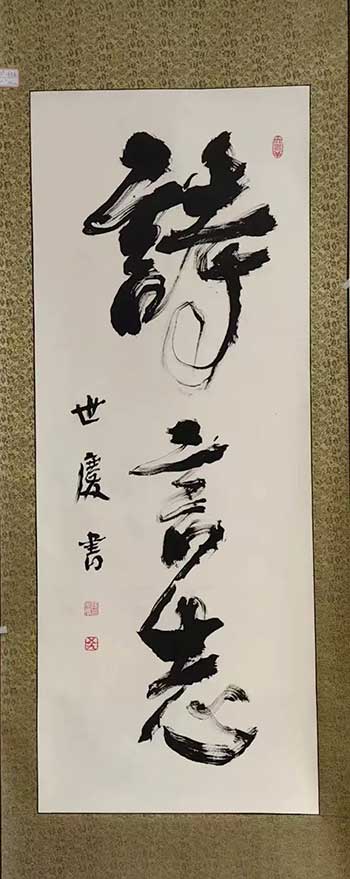 詩言志
世慶書